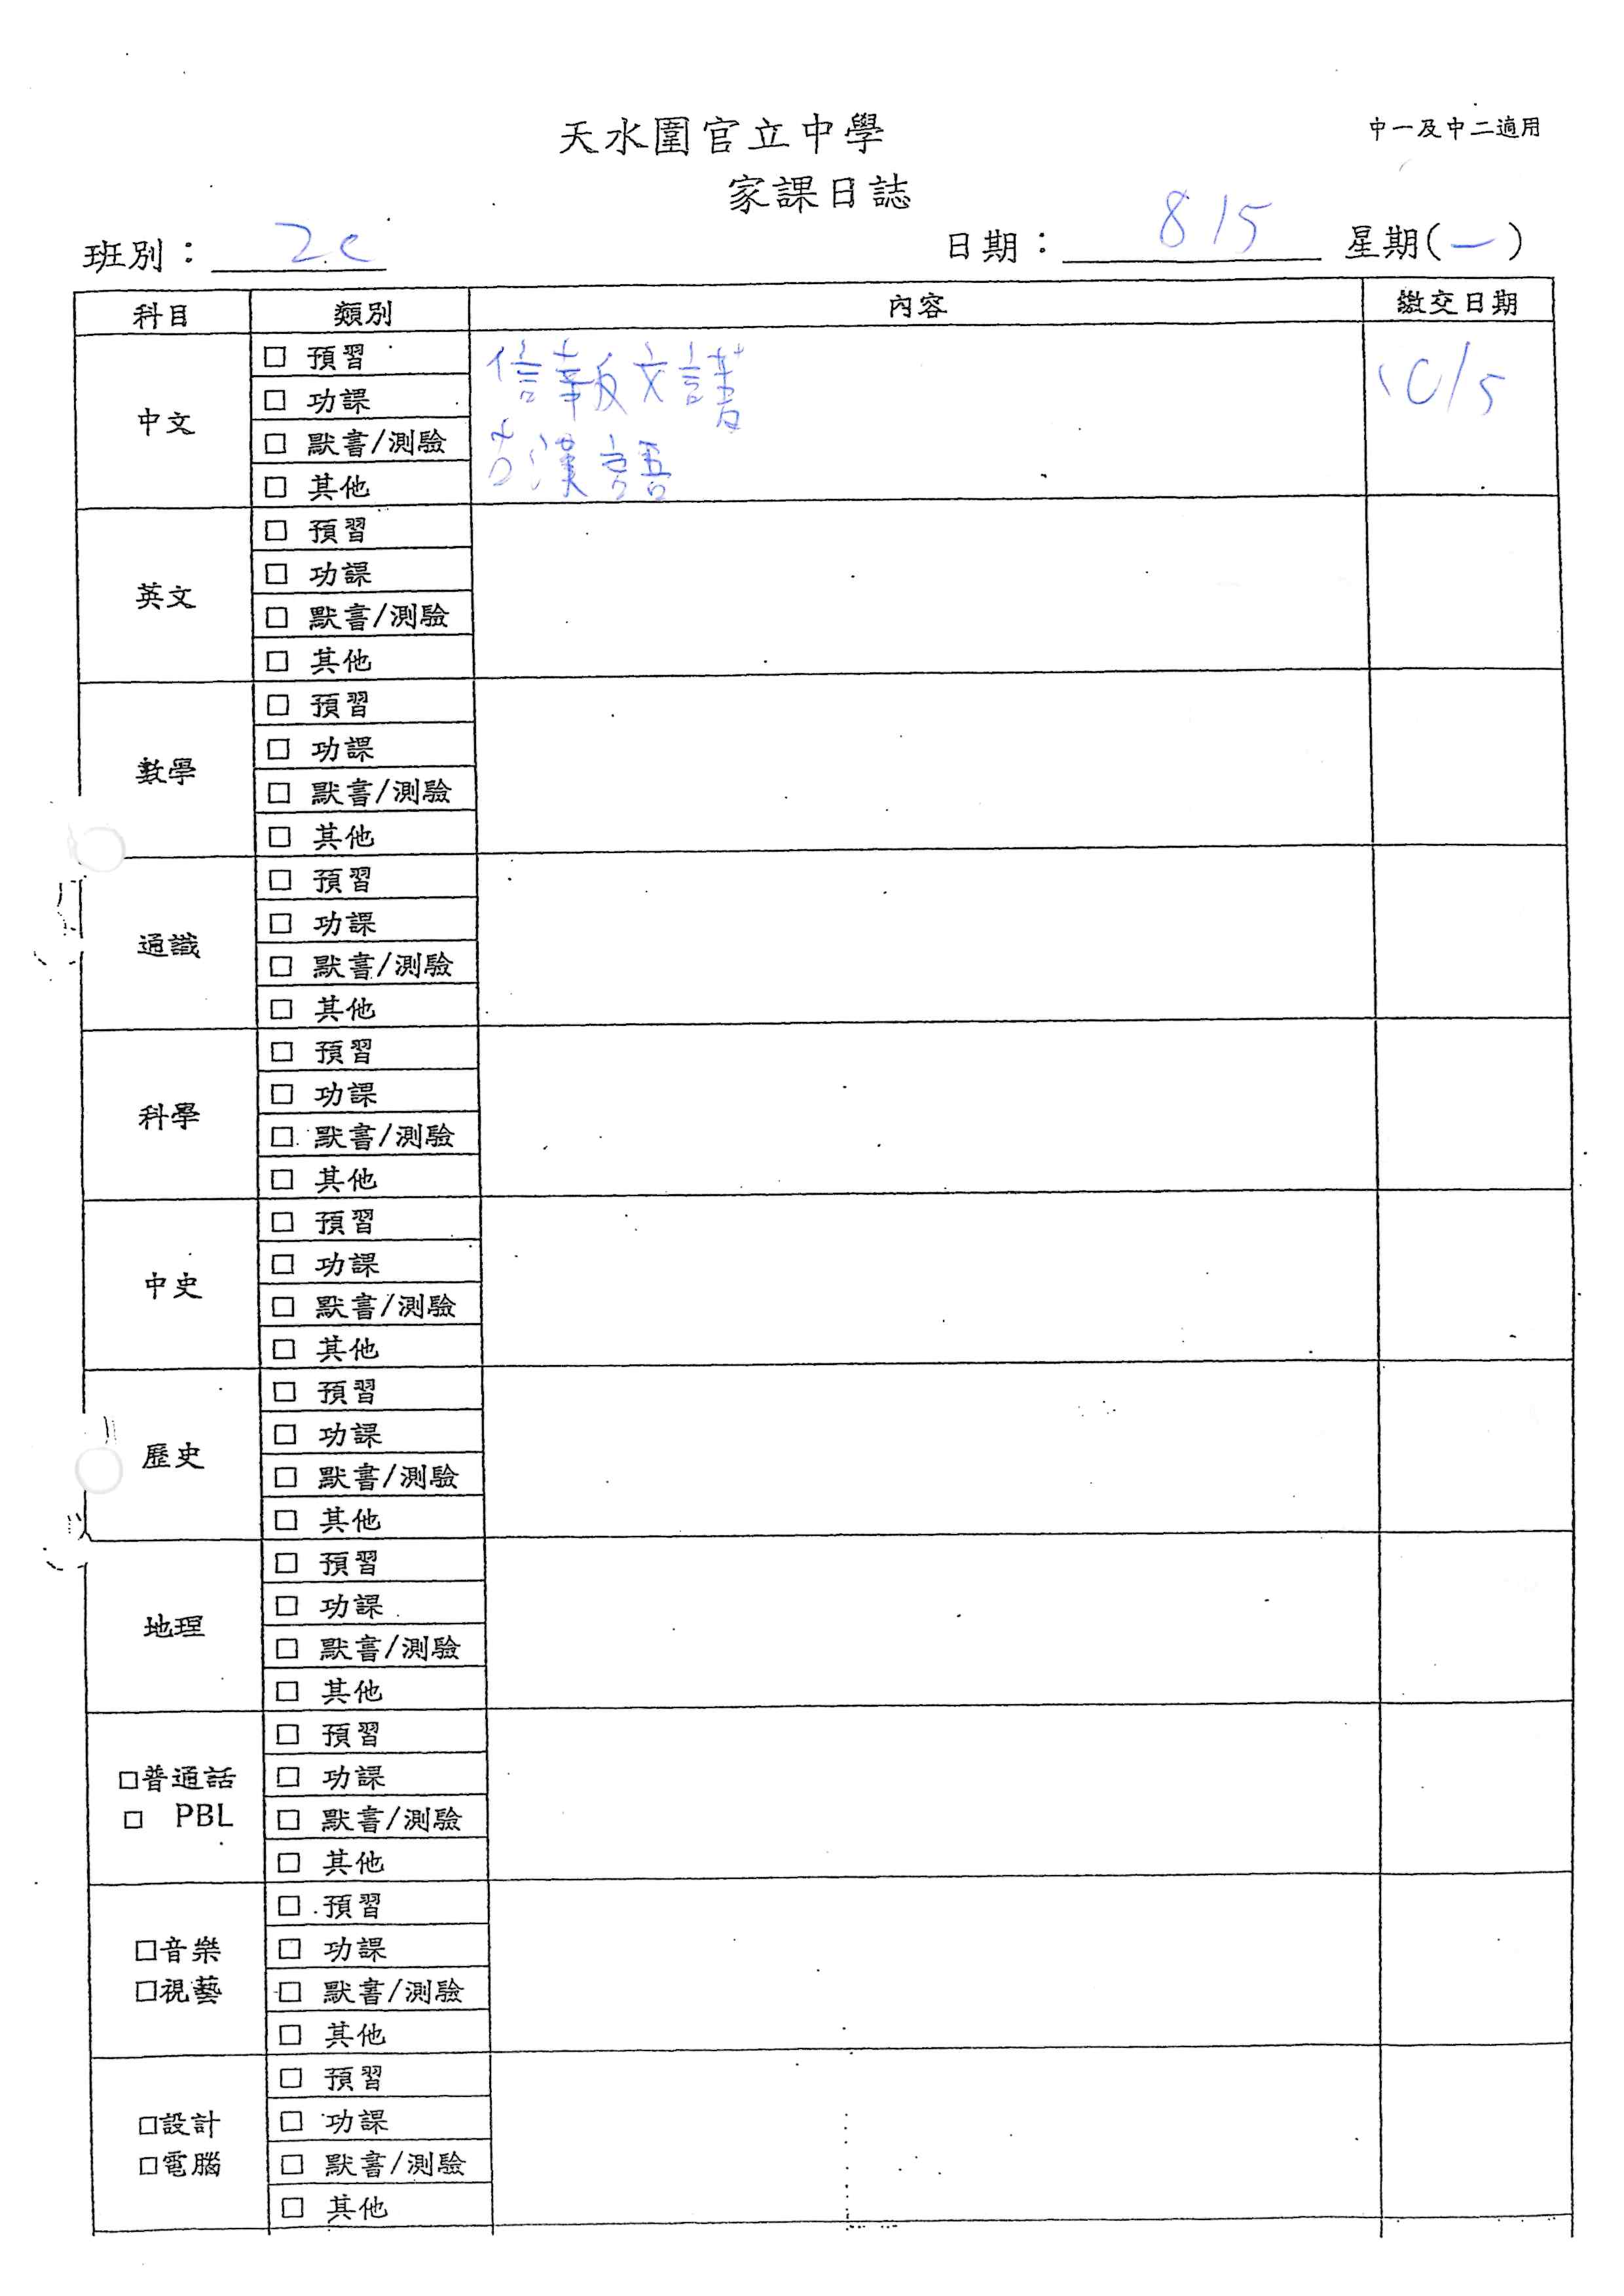 天水圍官立中學
中一及中二適用
家課日誌
班別： 2C 日期： 8/5 星期(一)
科目 類別 內容 繳交日期
中文
□ 預習
□ 功課
□ 默書/測驗
□ 其他
信報文譜
古漢語
10/5
英文
□ 預習
□ 功課
□ 默書/測驗
□ 其他
數學
□ 預習
□ 功課
□ 默書/測驗
□ 其他
通識
□ 預習
□ 功課
□ 默書/測驗
□ 其他
科學
□ 預習
□ 功課
□ 默書/測驗
□ 其他
中史
□ 預習
□ 功課
□ 默書/測驗
□ 其他
歷史
□ 預習
□ 功課
□ 默書/測驗
□ 其他
地理
□ 預習
□ 功課
□ 默書/測驗
□ 其他
□普通話
□ PBL
□ 預習
□ 功課
□ 默書/測驗
□ 其他
□音樂
□視藝
□ 預習
□ 功課
□ 默書/測驗
□ 其他
□設計
□電腦
□ 預習
□ 功課
□ 默書/測驗
□ 其他